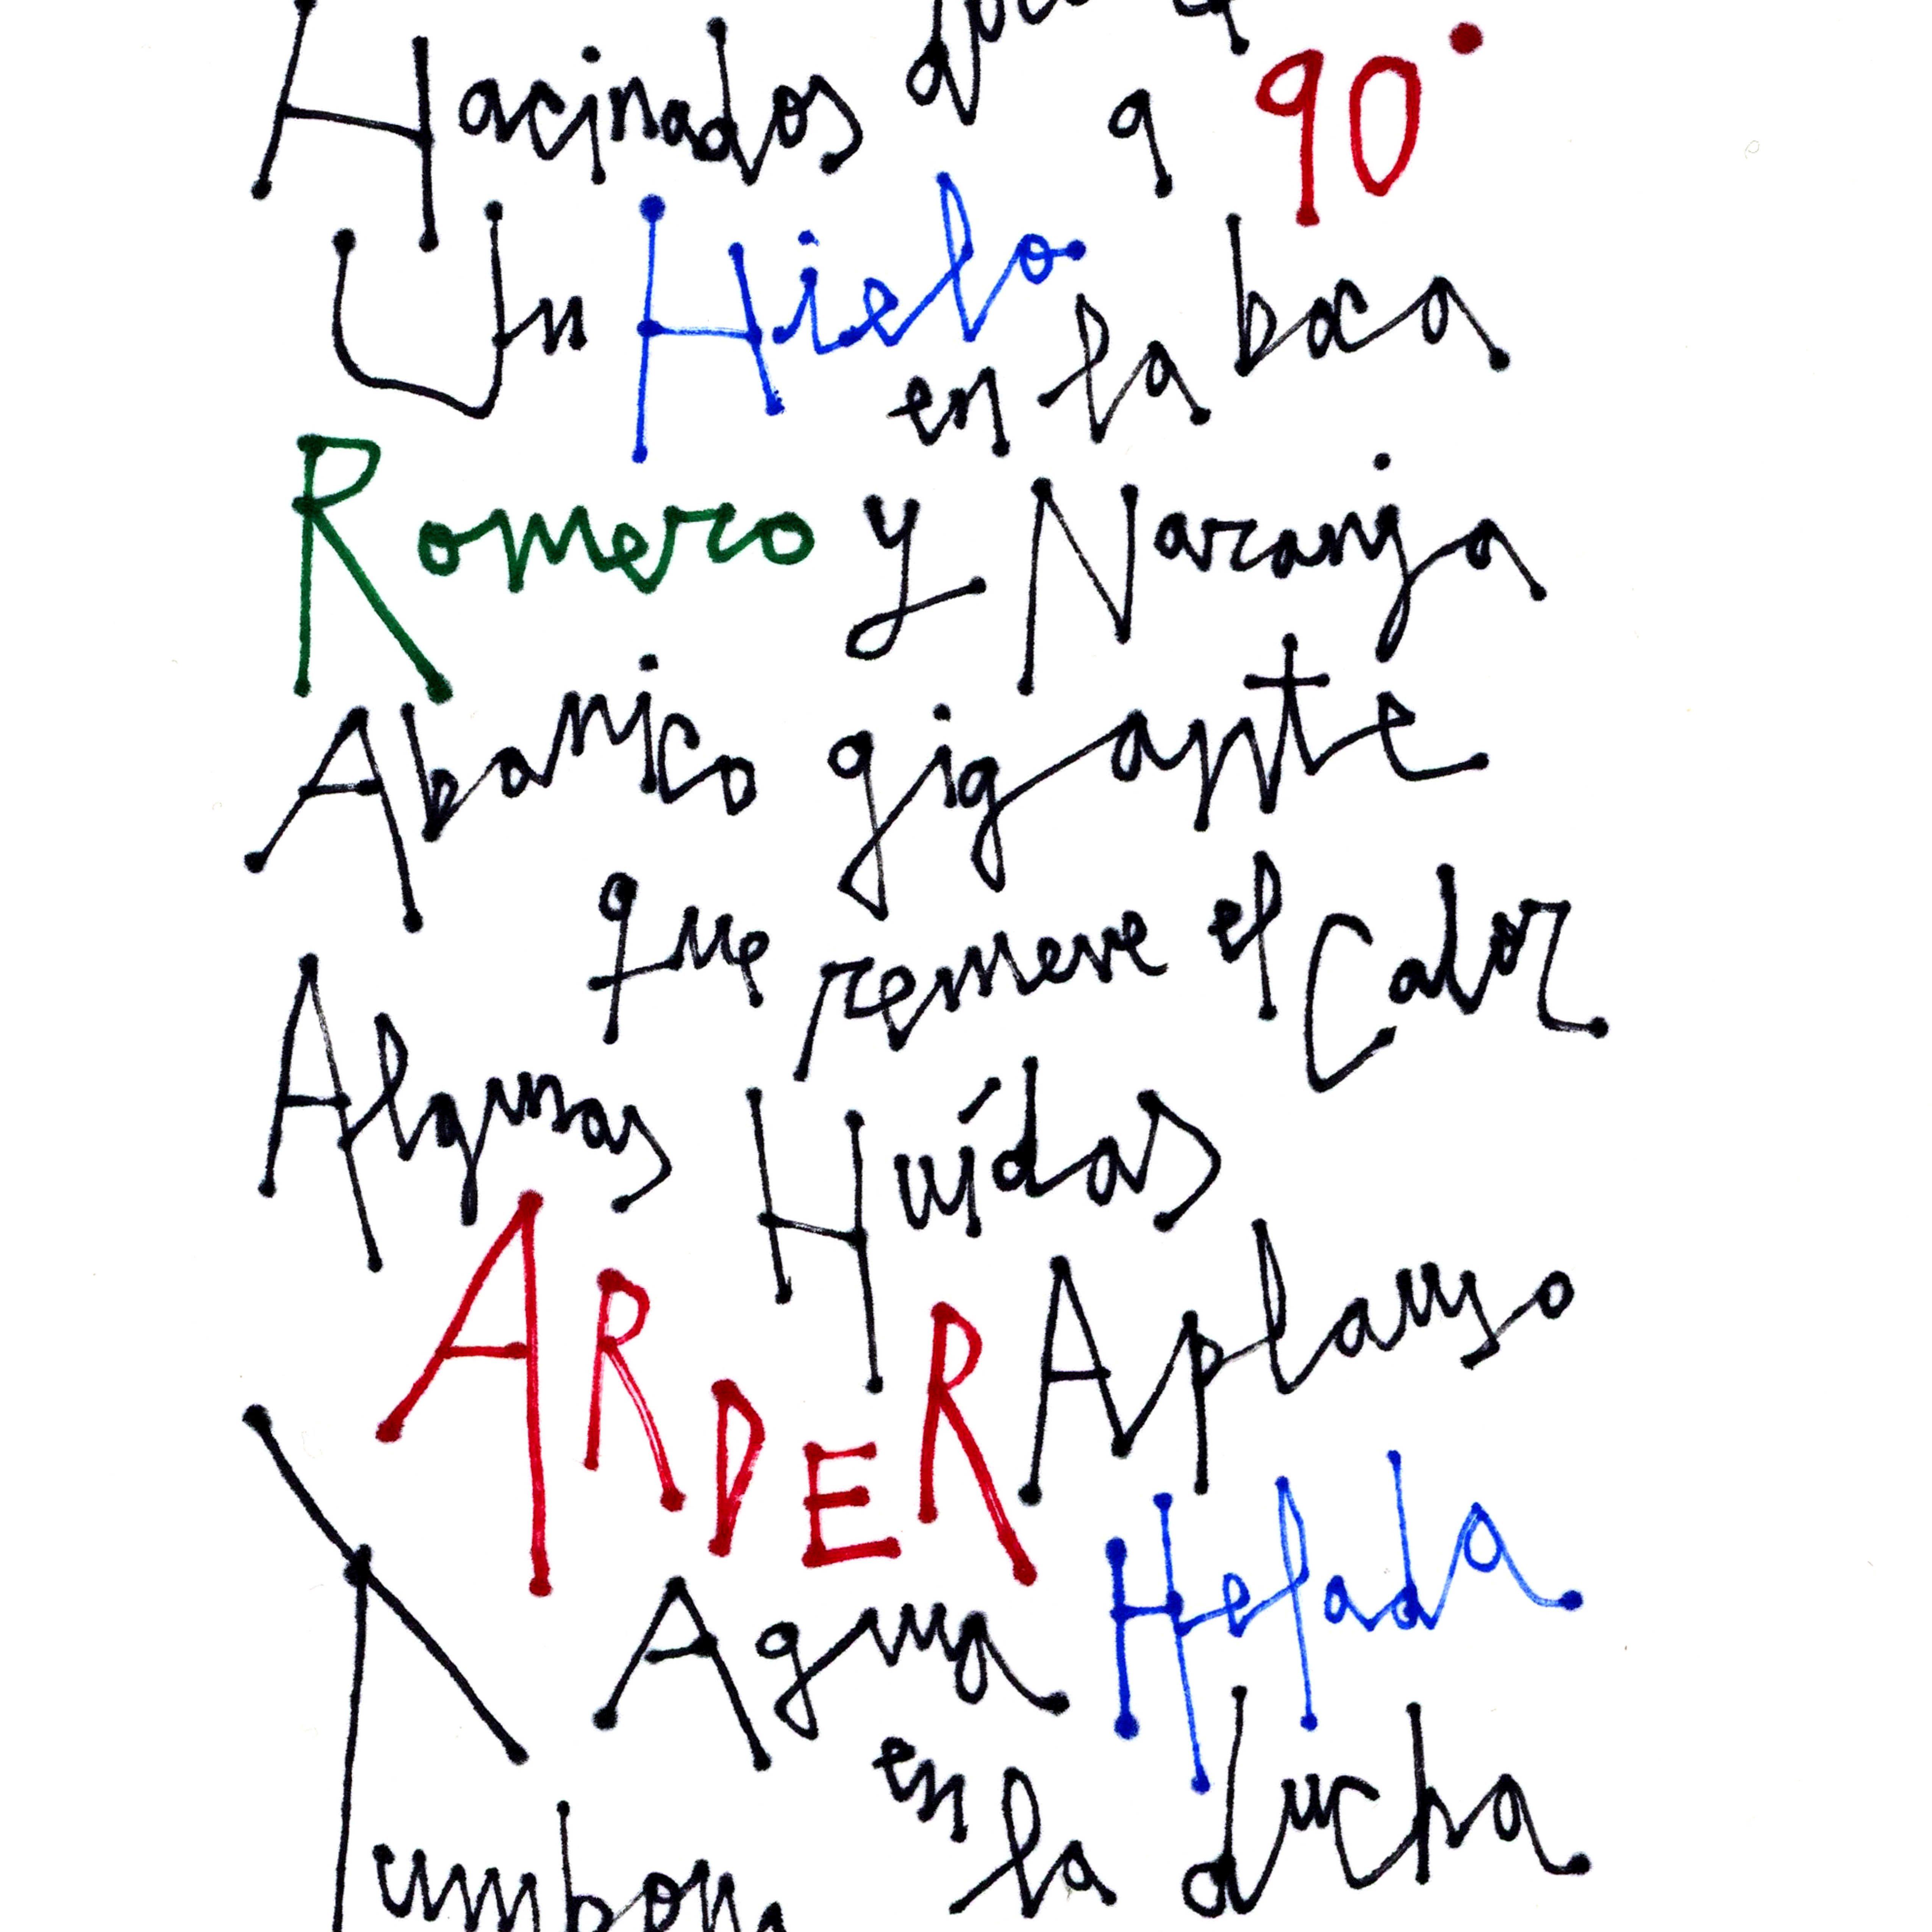 Hacinados a 90°
Un Hielo en la boca
Romero y Naranja
Abanico gigante
que remueve el Calor
Algunas Huídas
ARDER Aplauso
Y Agua Helada
en la ducha